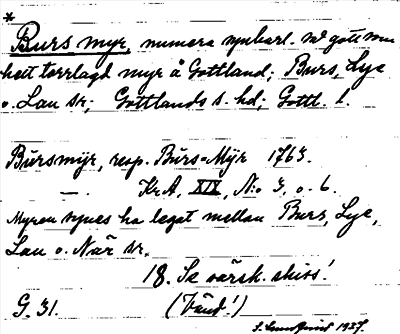 *
Burs myr, numera synbarl. så gott som
helt torrlagd myr å Gottland; Burs, Lye
o. Lau sr; Gottlands s. hd; Gottl. l.
Bursmÿr, resp. Burs=Mÿr 1763.
— . KrA, XIX, N:o 3, o. 6.
Myren synes ha legat mellan Burs, Lye,
Lau o. När sr.
18. Se särsk. skiss!
G. 31. (Fänd!)
1937.